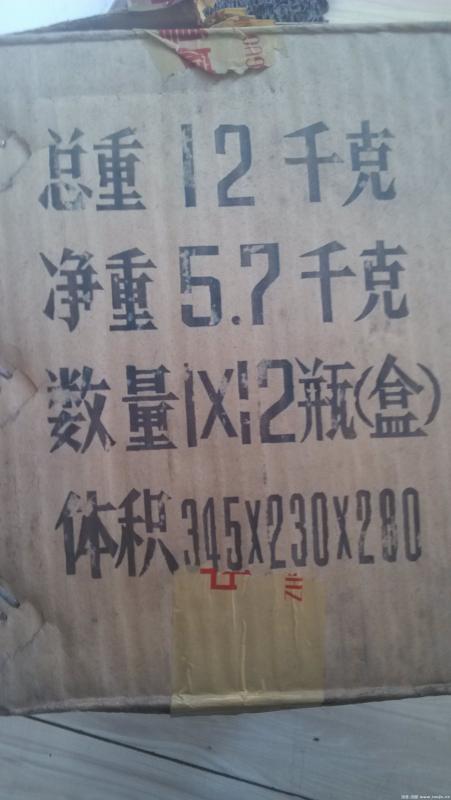 总重 12 千克
净重 5.7 千克
数量 1X12瓶(盒)
体积 345X230X280
HZ